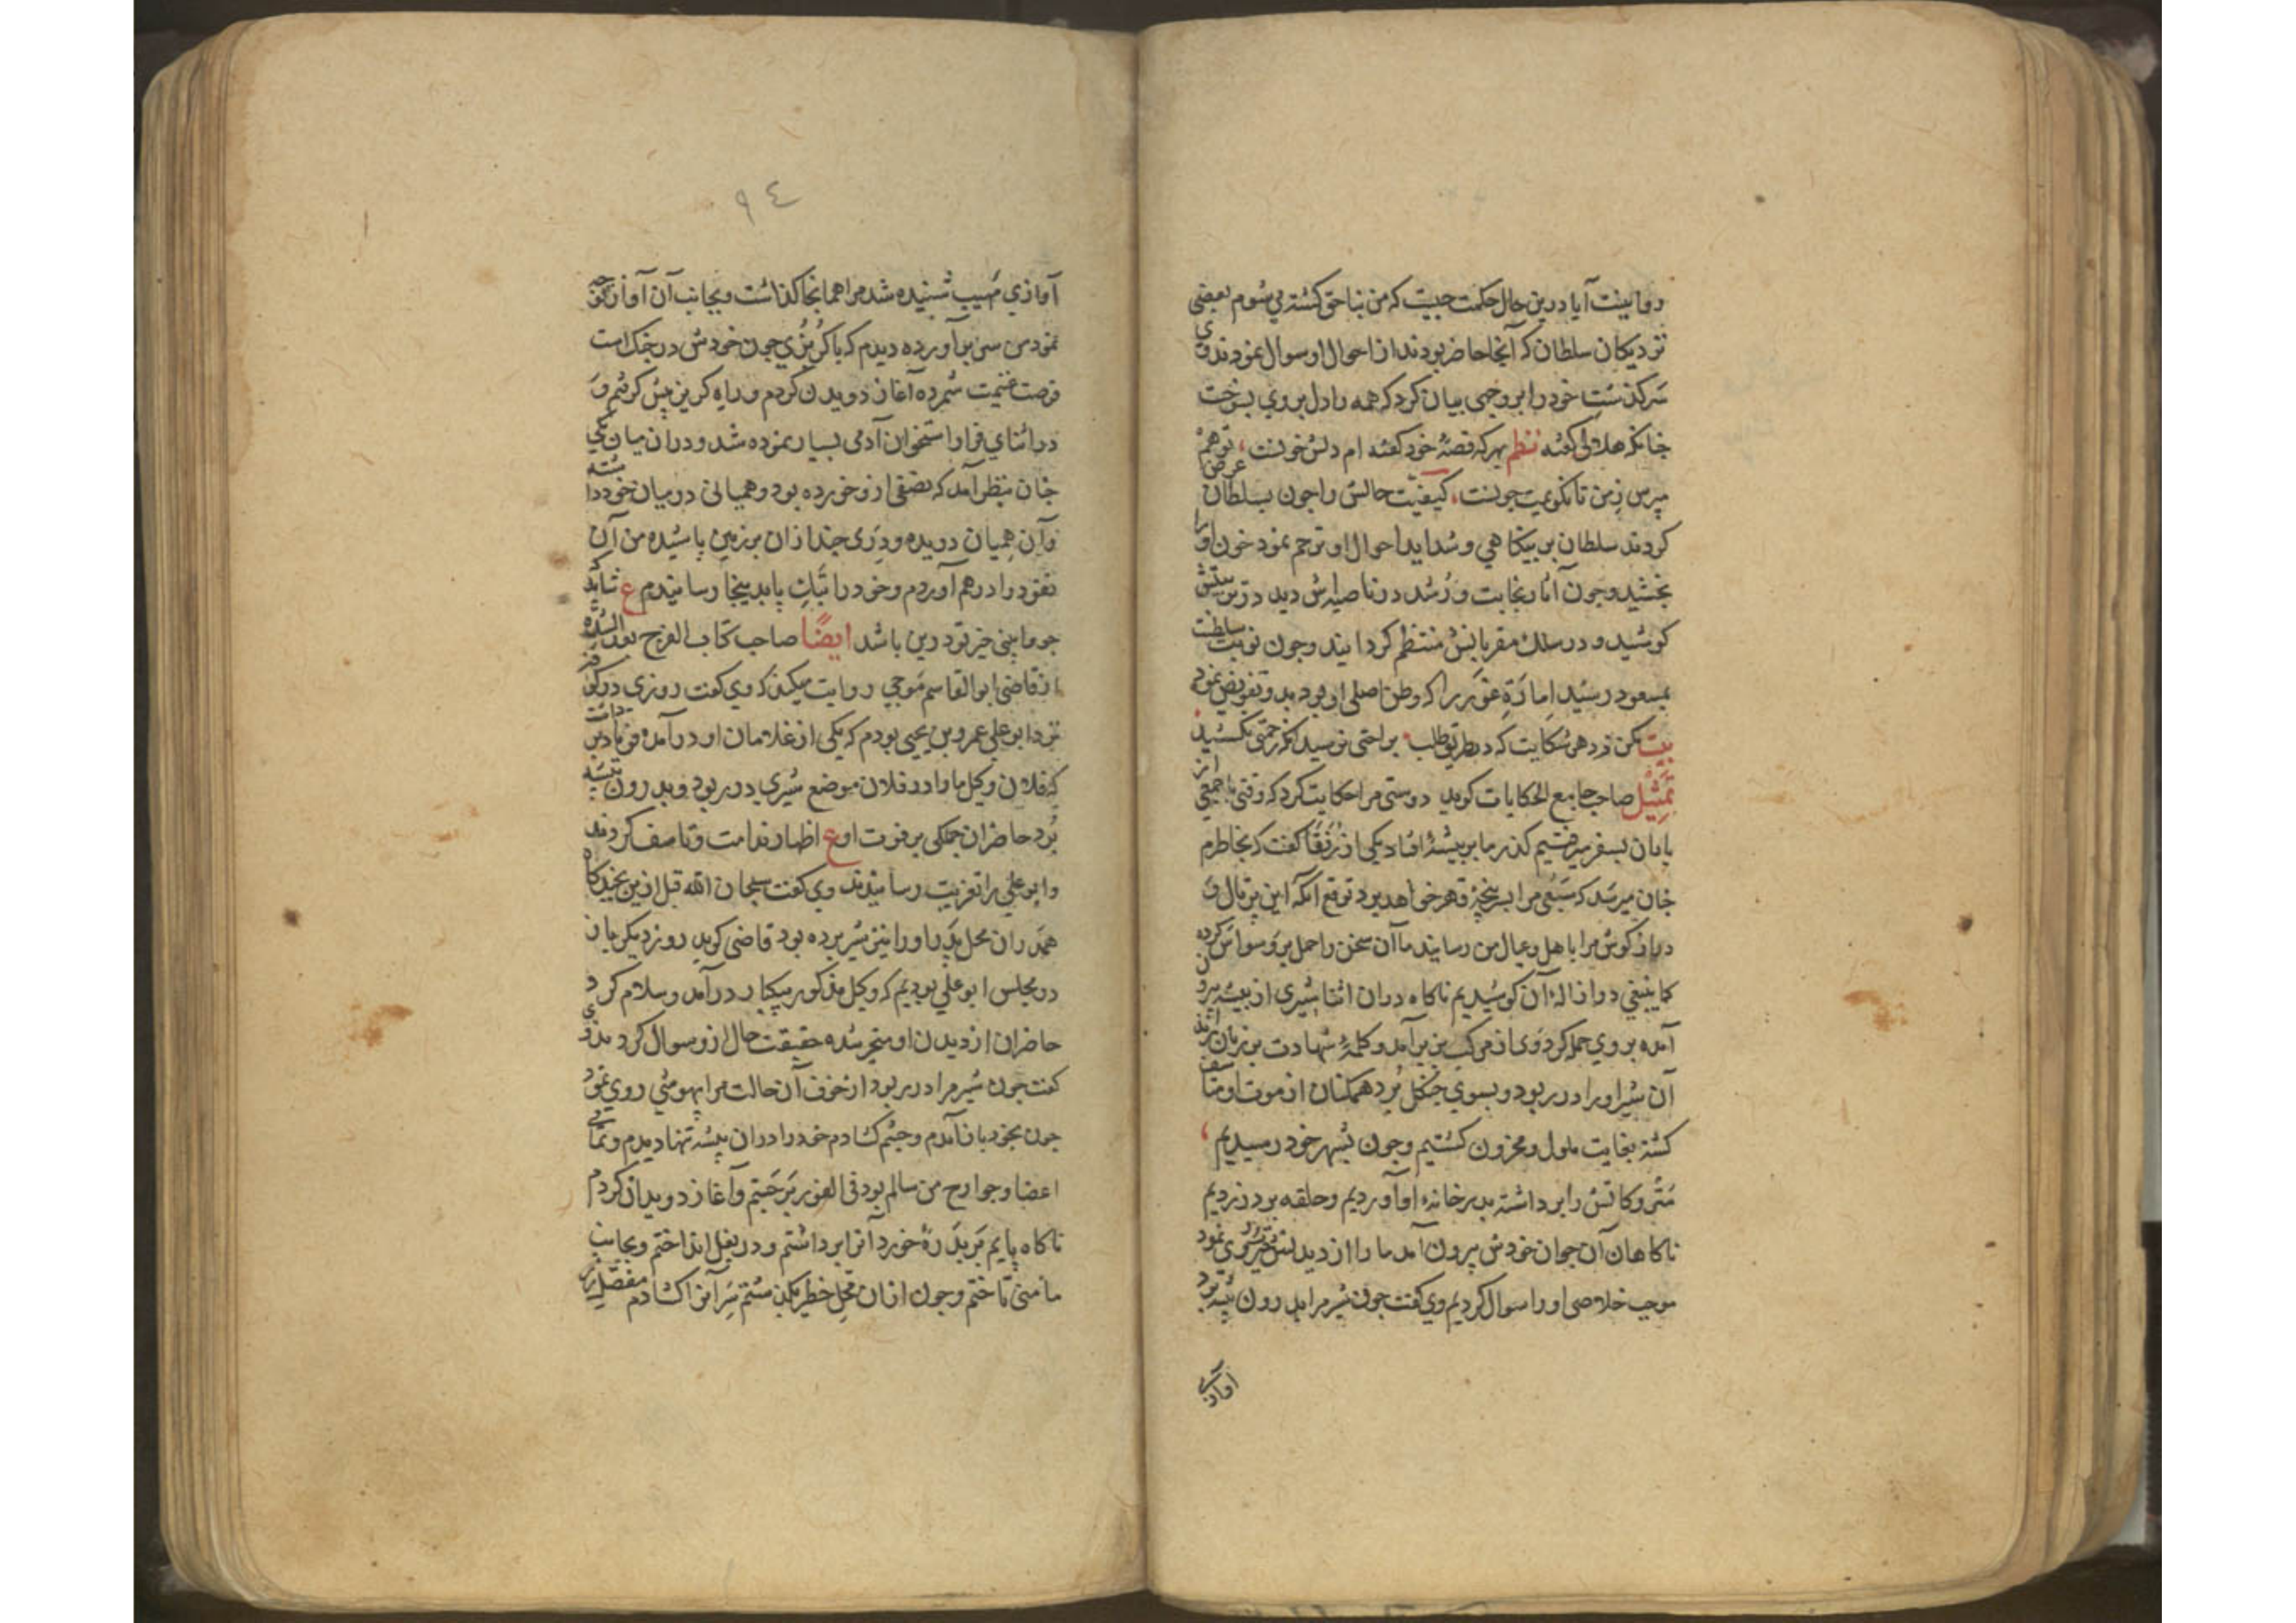 روا نیست آیا درین حال حکمت چیست که من بناحق کشته می شوم بعضی
نزدیکان سلطان که آنجا حاضر بودند از احوال او سوال نمودند وی
سرکذشت خود را بر وجهی بیان کرد که همه را دل بر وی بسوخت
چنانکه هلالی کفته نظم بهر که قصۀ خود کفته ام دلش خونست، تو هم
مپرس ز من تا نکویمت چونست، کیفیت حالش را چون بسلطان عرض
کردند سلطان بر بیکناهی و شداید احوال او ترحم نمود خون او را
بخشید و چون آثار نجابت و رشد در ناصیه اش دید در تربیتش
کوشید و در سلک مقربانش منتظم کردانید و چون نوبت سلطنت
بمسعود رسید امارة غور را که وطن اصلی او بود بدو تفویض نمود
بیت مکن ز دهر شکایت که در طریق طلب، براحتی نرسید آنکه زحمتی نکشید،
تمثیل صاحب جامع الحکایات کوید دوستی مرا حکایت کرد که وقتی با جمعی از
یاران بسفر میرفتیم کذر ما بر بیشۀ افتاد یکی از رفقا کفت که بخاطرم
چنان میرسد که سبعی مرا بسرپنجۀ قهر خواهد برد توقع آنکه این
دراز کوش مرا باهل و عیال من رسانید ما آن سخن را حمل بر وسواس کرده
کما ینبغی در ازالۀ آن کوشیدیم ناکاه در آن اثنا شیری از بیشه بیرون
آمده بر وی حمله کرد وی از مرکب بزیر آمد و کلمۀ شهادت بر زبان راند
آن شیر او را در ربود و بسوی جنکل برد همکنان از موت او متأسف
کشته بغایت ملول و محزون کشتیم و چون بشهر خود رسیدیم،
متروکاتش را برداشته بدر خانۀ او آوردیم و حلقه بر در زدیم
ناکاهان آن جوان خودش بیرون آمد ما را از دیدنش تحیر روی نمود
موجب خلاصی او را سوال کردیم وی کفت چون شیر مرا بدرون بیشه برد
آوازی
٩٤
آوازی مهیب شنیده شد مرا همانجا کذاشت و بجانب آن آواز توجه
نمود من سر بر آورده دیدم که با کرازی چون خودش در جنک است
فرصت غنیمت شمرده آغاز دویدن کردم و راه کریز پیش کرفتم و
در اثنای فرار استخوان آدمی بسیار نموده شد و در آن میان یکی
چنان بنظر آمد که نصفی ازو خورده بود و همیانی در میان خود داشته
و آن همیان دریده و زری چند از آن بر زمین پاشیده من آن
نقود را درهم آوردم و خود را بتک پا بدینجا رسانیدم ع شاید که
چو وابینی خیر تو درین باشد ایضًا صاحب کتاب الفرج بعد الشدة
از قاضی ابو القاسم روایت میکند که وی کفت روزی در کوفه
نزد ابو علی عمرو بن یحیی بودم که یکی از غلامان او درآمده فریاد برداشت
که فلان وکیل ما را در فلان موضع شیری در ربود و بدرون بیشه
برد حاضران جملکی بر فوت او اظهار ندامت و تاسف کردند
و ابو علی را تعزیت رسانیدند وی کفت سبحان الله قبل ازین بچند کاه
همدران محل پدر او را نیز شیر برده بود قاضی کوید روز دیکر باز
در مجلس ابو علی بودیم که وکیل مذکور بیکبار درآمد و سلام کرد
حاضران از دیدن او متحیر شده حقیقت حال ازو سوال کردند وی
کفت چون شیر مرا در ربود از خوف آن حالت مرا بیهوشی روی نمود
چون بخود باز آمدم و چشم کشادم خود را در آن بیشه تنها دیدم و تمامی
اعضا و جوارح من سالم بود فی الفور برجستم و آغاز دویدن کردم
ناکاه پایم بر بدرۀ خورد آنرا برداشتم و در بغل انداختم و بجانب
مأمنی تاختم و چون از آن محل خطر کشادم